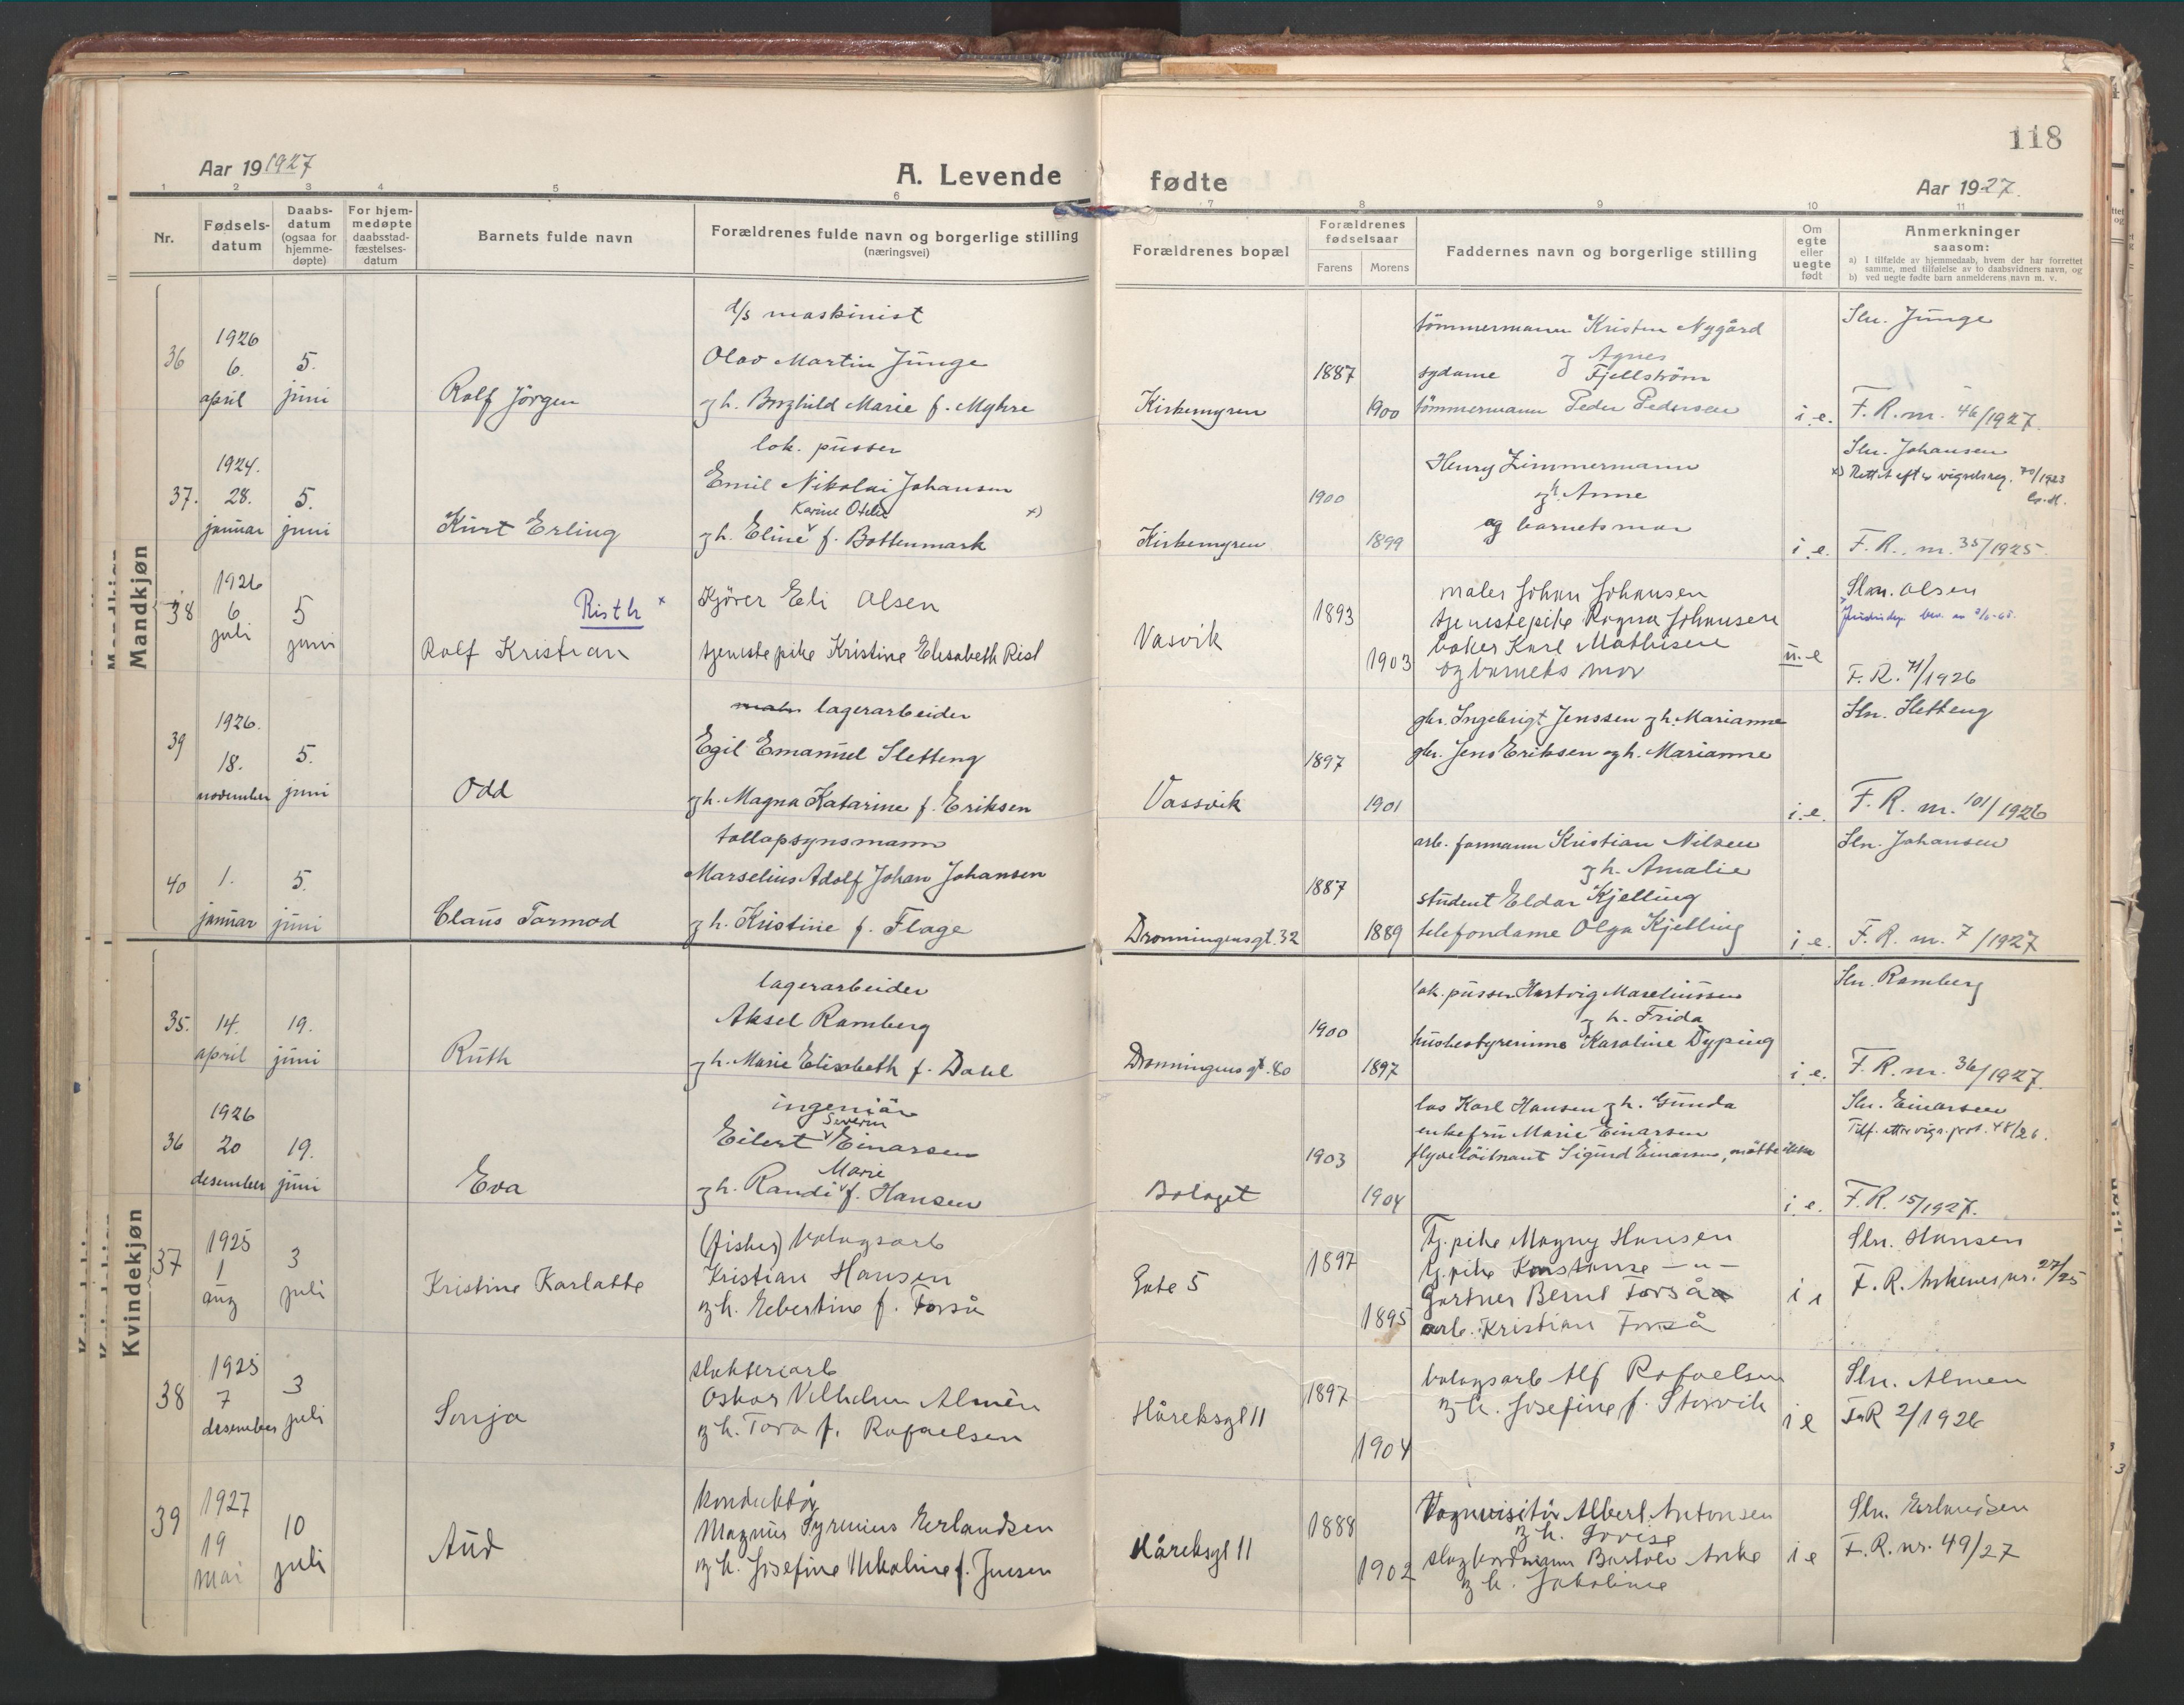 118
Aar 19 1927
A. Levende fødte
Aar 1927.
1 2 3 4 5 6 7 8 9 10 11
Nr.
Fødsels-
datum
Daabs-
datum
(ogsaa for
hjemme-
døpte)
For hjem-
medøpte
daabsstad-
fæstelses-
datum
Barnets fulde navn
Forældrenes fulde navn og borgerlige stilling
(næringsvei)
Forældrenes bopæl
Forældrenes
fødselsaar
Farens Morens
Faddernes navn og borgerlige stilling
Om
egte
eller
uegte
født
Anmerkninger
saasom:
a) I tilfælde av hjemmedaab, hvem der har forrettet
samme, med tilføielse av to daabsvidners navn, og
b) ved uegte fødte barn anmelderens navn m. v.
Mandkjøn
36
1926
6.
april
5.
juni
Rolf Jörgen
d/s maskinist
Olav Martin Junge
og h. Borghild Marie f. Myhre
Kirkemyren
1887
1900
tömmermann Kristen Nygård
og Agnes
sydame Fjellström
tömmermann Peder Pedersen
i.e.
Sln. Junge
F. R. nr. 46/1927.
37.
1924.
28.
januar
5.
juni
Kurt Erling
lok. pusser
Emil Nikolai Johansen
Karine Otelie x)
og h. Eline f. Bottenmark
Kirkemyren
1900
1899
Henry Zimmermann
og h. Anne
og barnets mor
i.e.
Sln. Johansen
x) Rettet efter vigselsreg. 70/1923
F. R. nr. 35/1925.
38
1926
6
juli
5
juni
Risth x
Rolf Kristian
Kjörer Eli Olsen
tjenestepike Kristine Elisabeth Rist
Vasvik
1893
1903
maler Johan Johansen
tjenestepike Ragna Johansen
baker Karl Mathisen
og barnets mor
u.e
Slm. Olsen
F. R. 71/1926
39
1926.
18.
november
5.
juni
Odd
lagerarbeider
Egil Emanuel Sletteng
og h. Magna Katarine f. Eriksen
Vassvik
1897
1901
gbr. Ingebrigt Jenssen og h. Marianne
gbr. Jens Eriksen og h. Marianne
i.e.
Sln. Sletteng
F. R. nr. 101/1926
40
1.
januar
5.
juni
Claus Tormod
tollopsynsmann
Marselius Adolf Johan Johansen
og h. Kristine f. Flage
Dronningensgt. 32
1887
1889
arb. formann Kristian Nilsen
og h. Amalie
student Eldar Kjelling
telefondame Olga Kjelling
i e.
Sln. Johansen
F. R. nr. 7/1927
Kvindekjøn
35.
14.
april
19.
juni
Ruth
lagerarbeider
Aksel Ramberg
og h. Marie Elisabeth f. Dahl
Dronningens gt. 80
1900
1897
lok. pusser Hartvig Mareliussen
og h. Frida
husbestyrerinne Karoline Dyping
i.e.
Sln. Ramberg
F. R. nr. 36/1927.
36
1926
20
desember
19.
juni
Eva
ingeniör
Severin
Eilert Einarsen
Marie
og h. Randi f. Hansen
Bolaget
1903
1904
los Karl Hansen og h. Gunda
enkefru Marie Einarsen
flyvelöitnant Sigurd Einarsen, mötte ikke
i.e.
Sln. Einarsen
Tilf. etter vigs. prot. 48/26.
F. R. 15/1927.
37
1925
1
aug
3
juli
Kristine Karlotte
(fisker) bolagsarb
Kristian Hansen
og h. Edbertine f. Forså
Gate 5
1897
1895
Tj. pike Magny Hansen
tj. pike Konstanse — " —
Gartner Bernt Forså
arb. Kristian Forså
i e
Sln. Hansen
F. R. Ankenes nr. 27/25
38
1925
7
desember
3
juli
Sonja
slakteriarb
Oskar Vilhelm Almèn
og h. Tora f. Rafaelsen
Håreksgt 11
1897
1904
bolagsarb Alf Rafaelsen
og h. Josefine f. Storvik
i e
Sln. Almen
F. R 2/1926
39
1927
19
mai
10
juli
Aud
konduktör
Magnus Syrenius Erlandsen
og h. Josefine Nikoline f. Jensen
Håreksgt 11
1888
1902
Vognvisitör Albert Antonsen
og h. Lovise
Bartolv Anke
og h. Jakobine
i e
Sln. Erlandsen
F. R. nr. 49/27